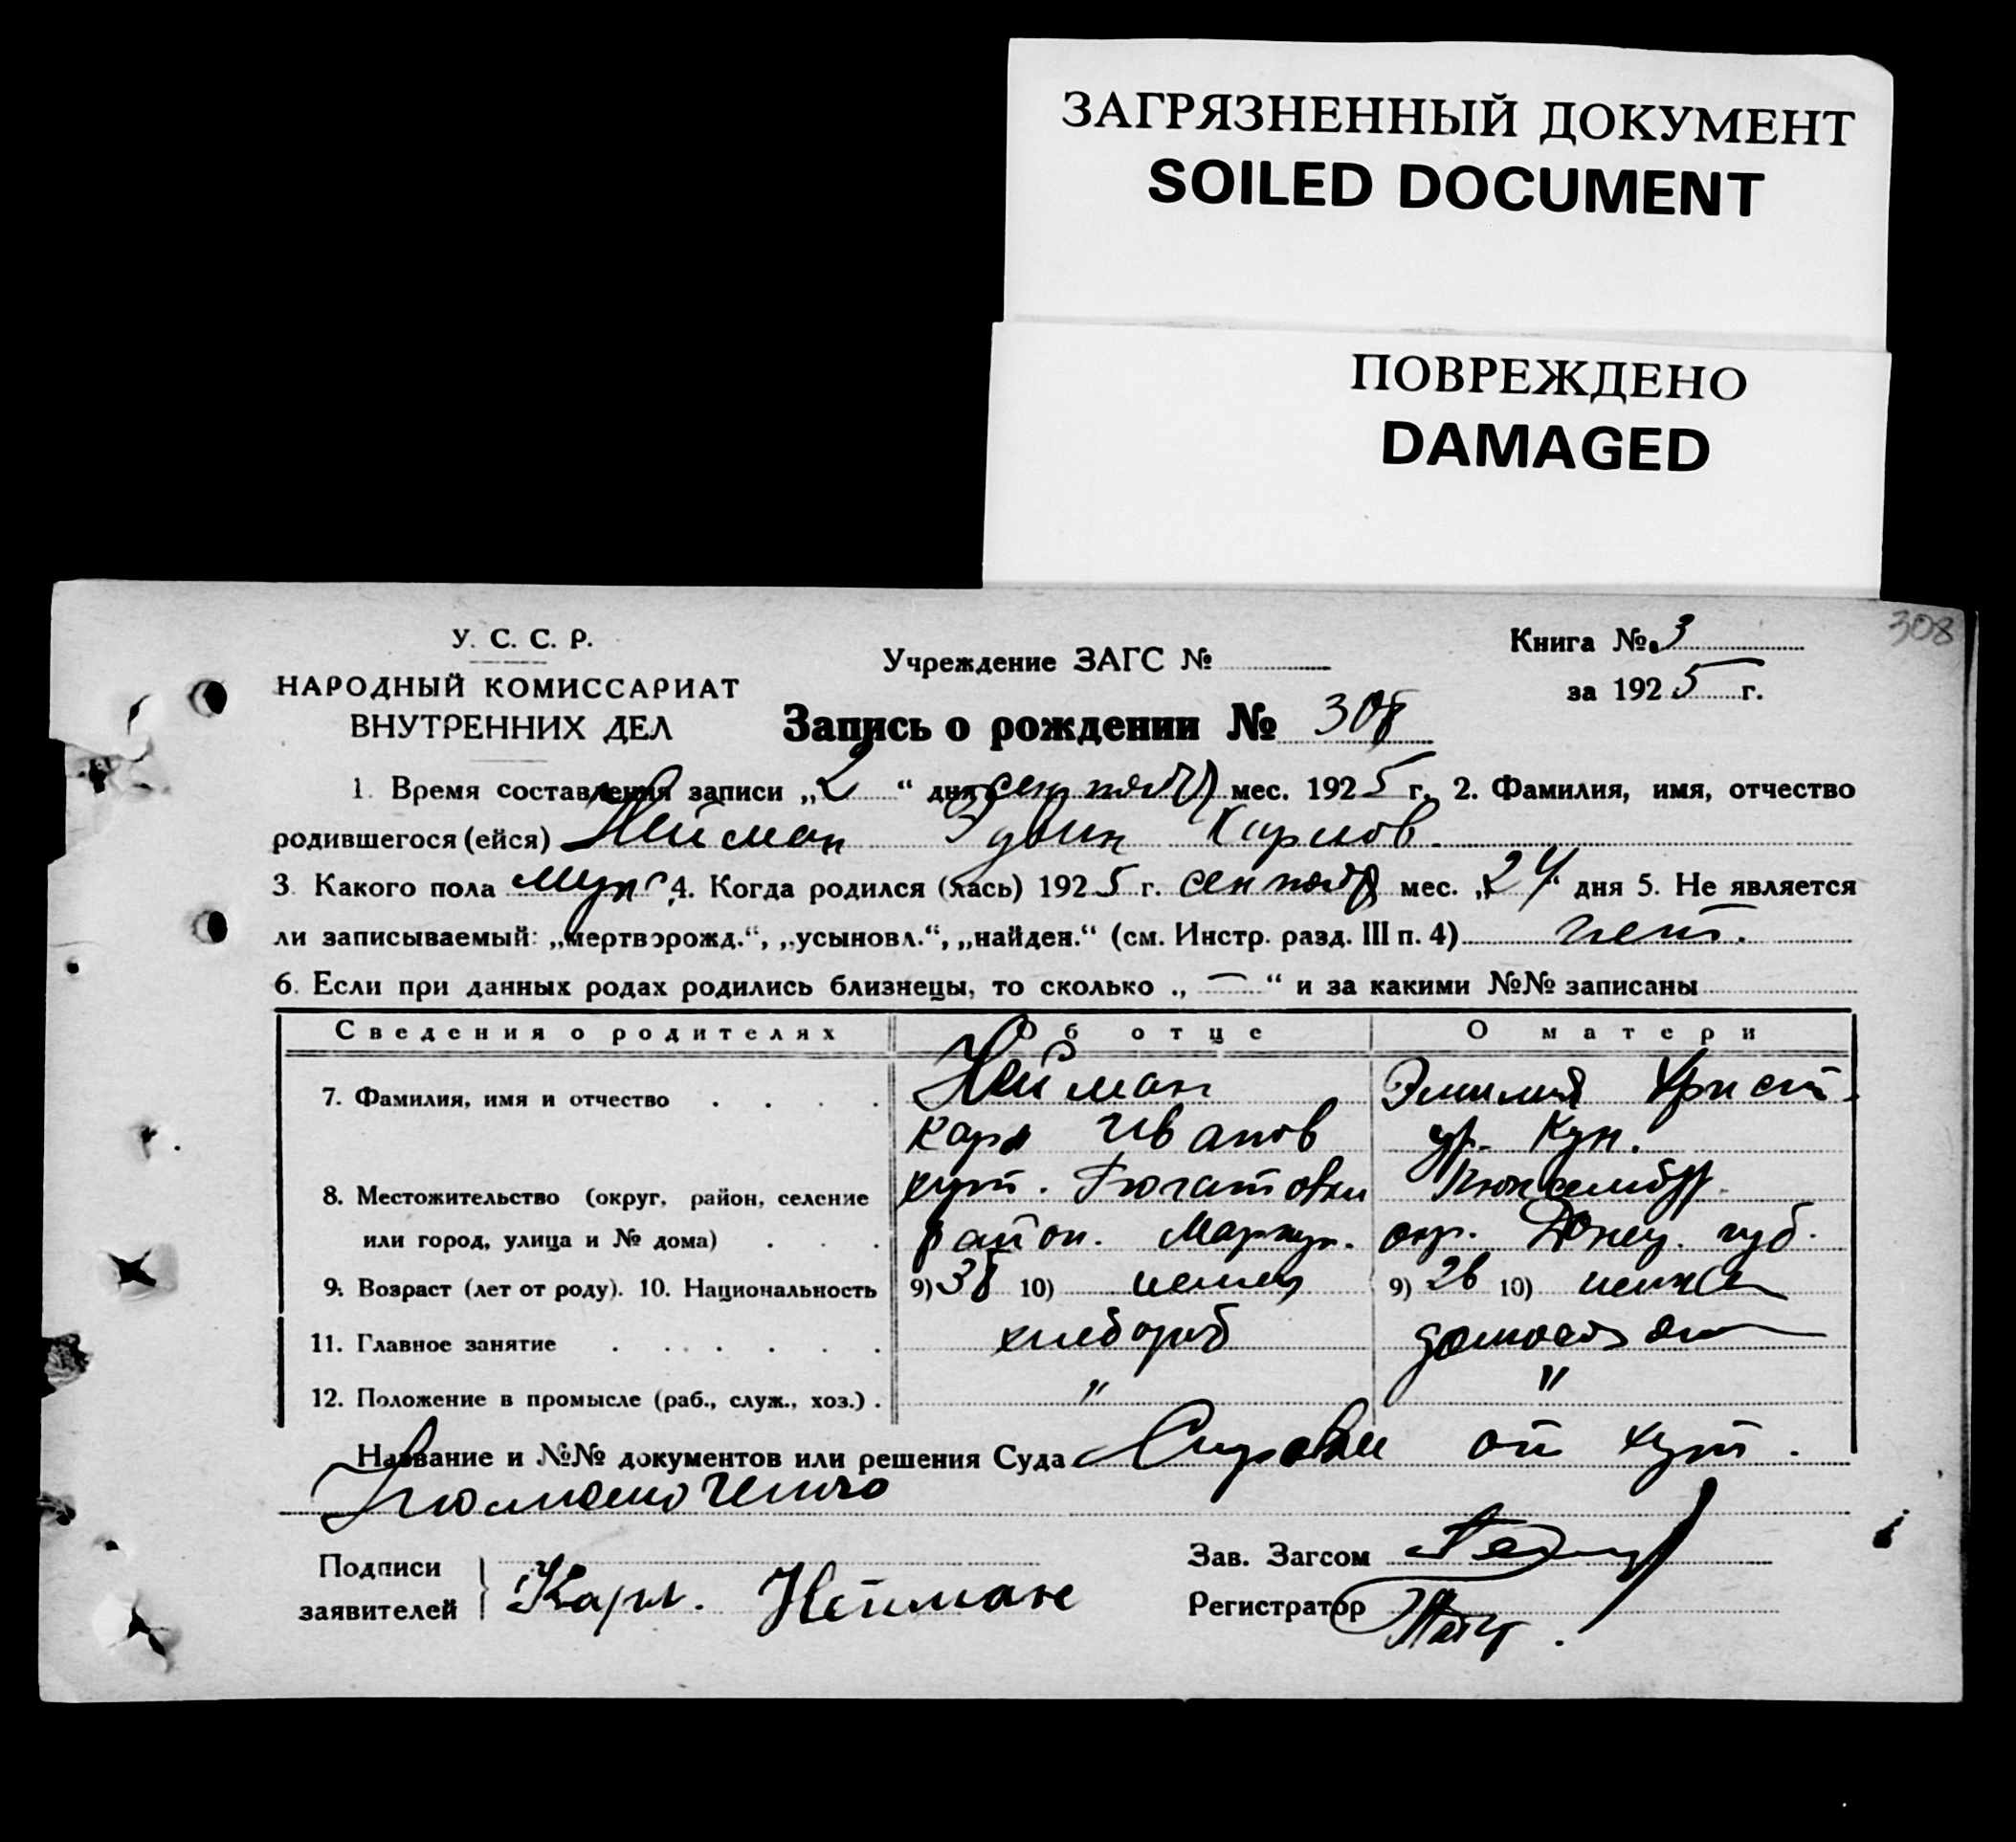 ЗАГРЯЗНЕННЫЙ ДОКУМЕНТ
SOILED DOCUMENT
ПОВРЕЖДЕНО
DAMAGED
308
У. С. С. Р.
НАРОДНЫЙ КОМИССАРИАТ
ВНУТРЕННИХ ДЕЛ
Учреждение ЗАГС №
Книга № 3
за 1925 г.
Запись о рождении № 308
1. Время составления записи „2“ дня сентября мес. 1925 г. 2. Фамилия, имя, отчество
родившегося (ейся) Нейман Эдвин Карлов.
3. Какого пола муж. 4. Когда родился (лась) 1925 г. сентября мес. „24“ дня 5. Не является
ли записываемый: „мертворожд.“, „усыновл.“, „найден.“ (см. Инстр. разд. III п. 4) нет.
6. Если при данных родах родились близнецы, то сколько „—“ и за какими №№ записаны
Сведения о родителях Об отце О матери
7. Фамилия, имя и отчество . . . . Нейман Эмилия Христ.
Карл Иванов ур. Кун.
8. Местожительство (округ, район, селение хут. Люксембург.
или город, улица и № дома) . . . район. Мариуп. окр. Донец. губ.
9. Возраст (лет от роду). 10. Национальность 9) 38 10) немец 9) 26 10) немка
11. Главное занятие . . . . . . хлебороб домохоз
12. Положение в промысле (раб., служ., хоз.) . " "
Название и №№ документов или решения Суда Справки от хут.
Подписи
заявителей Карл. Нейман
Зав. Загсом
Регистратор